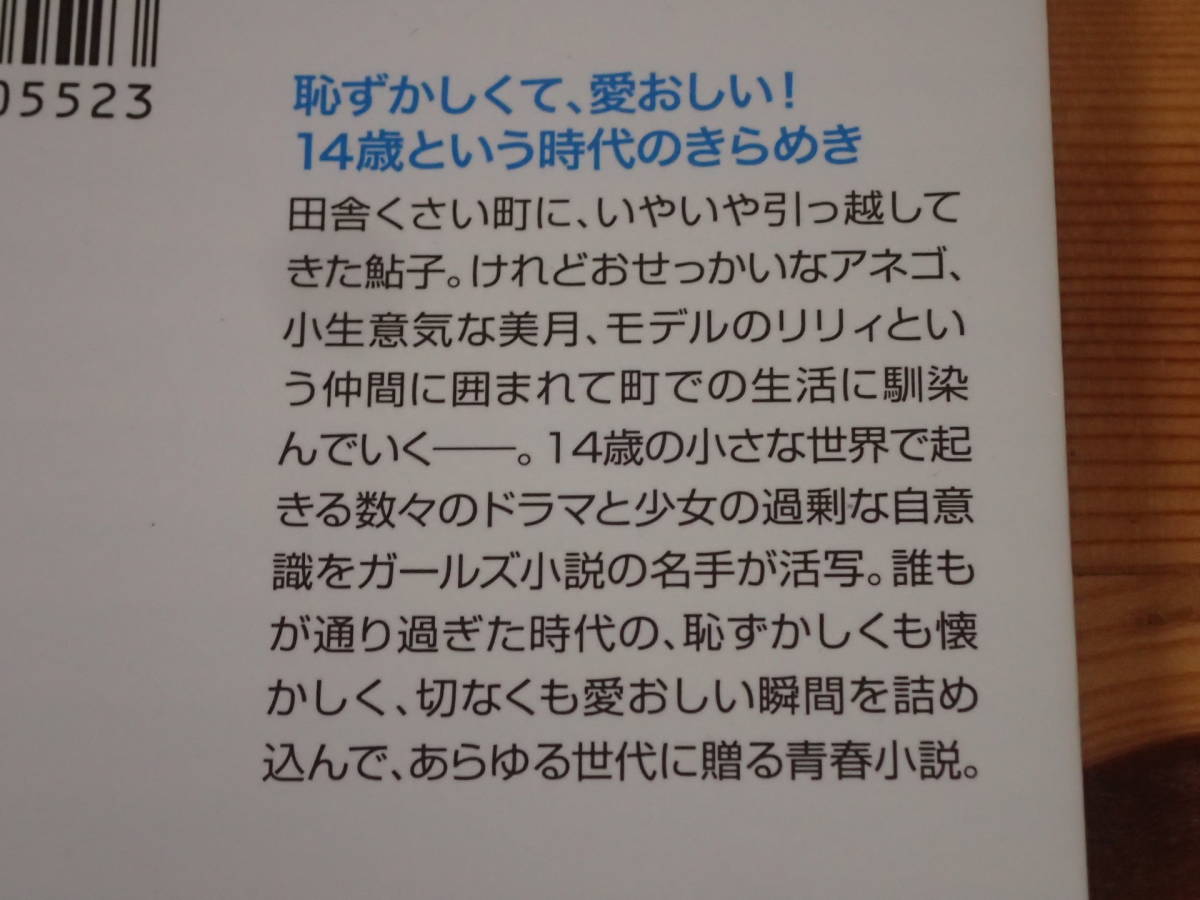 05523
恥ずかしくて、愛おしい!
14歳という時代のきらめき
田舎くさい町に、いやいや引っ越して
きた鮎子。けれどおせっかいなアネゴ、
小生意気な美月、モデルのリリィとい
う仲間に囲まれて町での生活に馴染
んでいく――。14歳の小さな世界で起
きる数々のドラマと少女の過剰な自意
識をガールズ小説の名手が活写。誰も
が通り過ぎた時代の、恥ずかしくも懐
かしく、切なくも愛おしい瞬間を詰め
込んで、あらゆる世代に贈る青春小説。